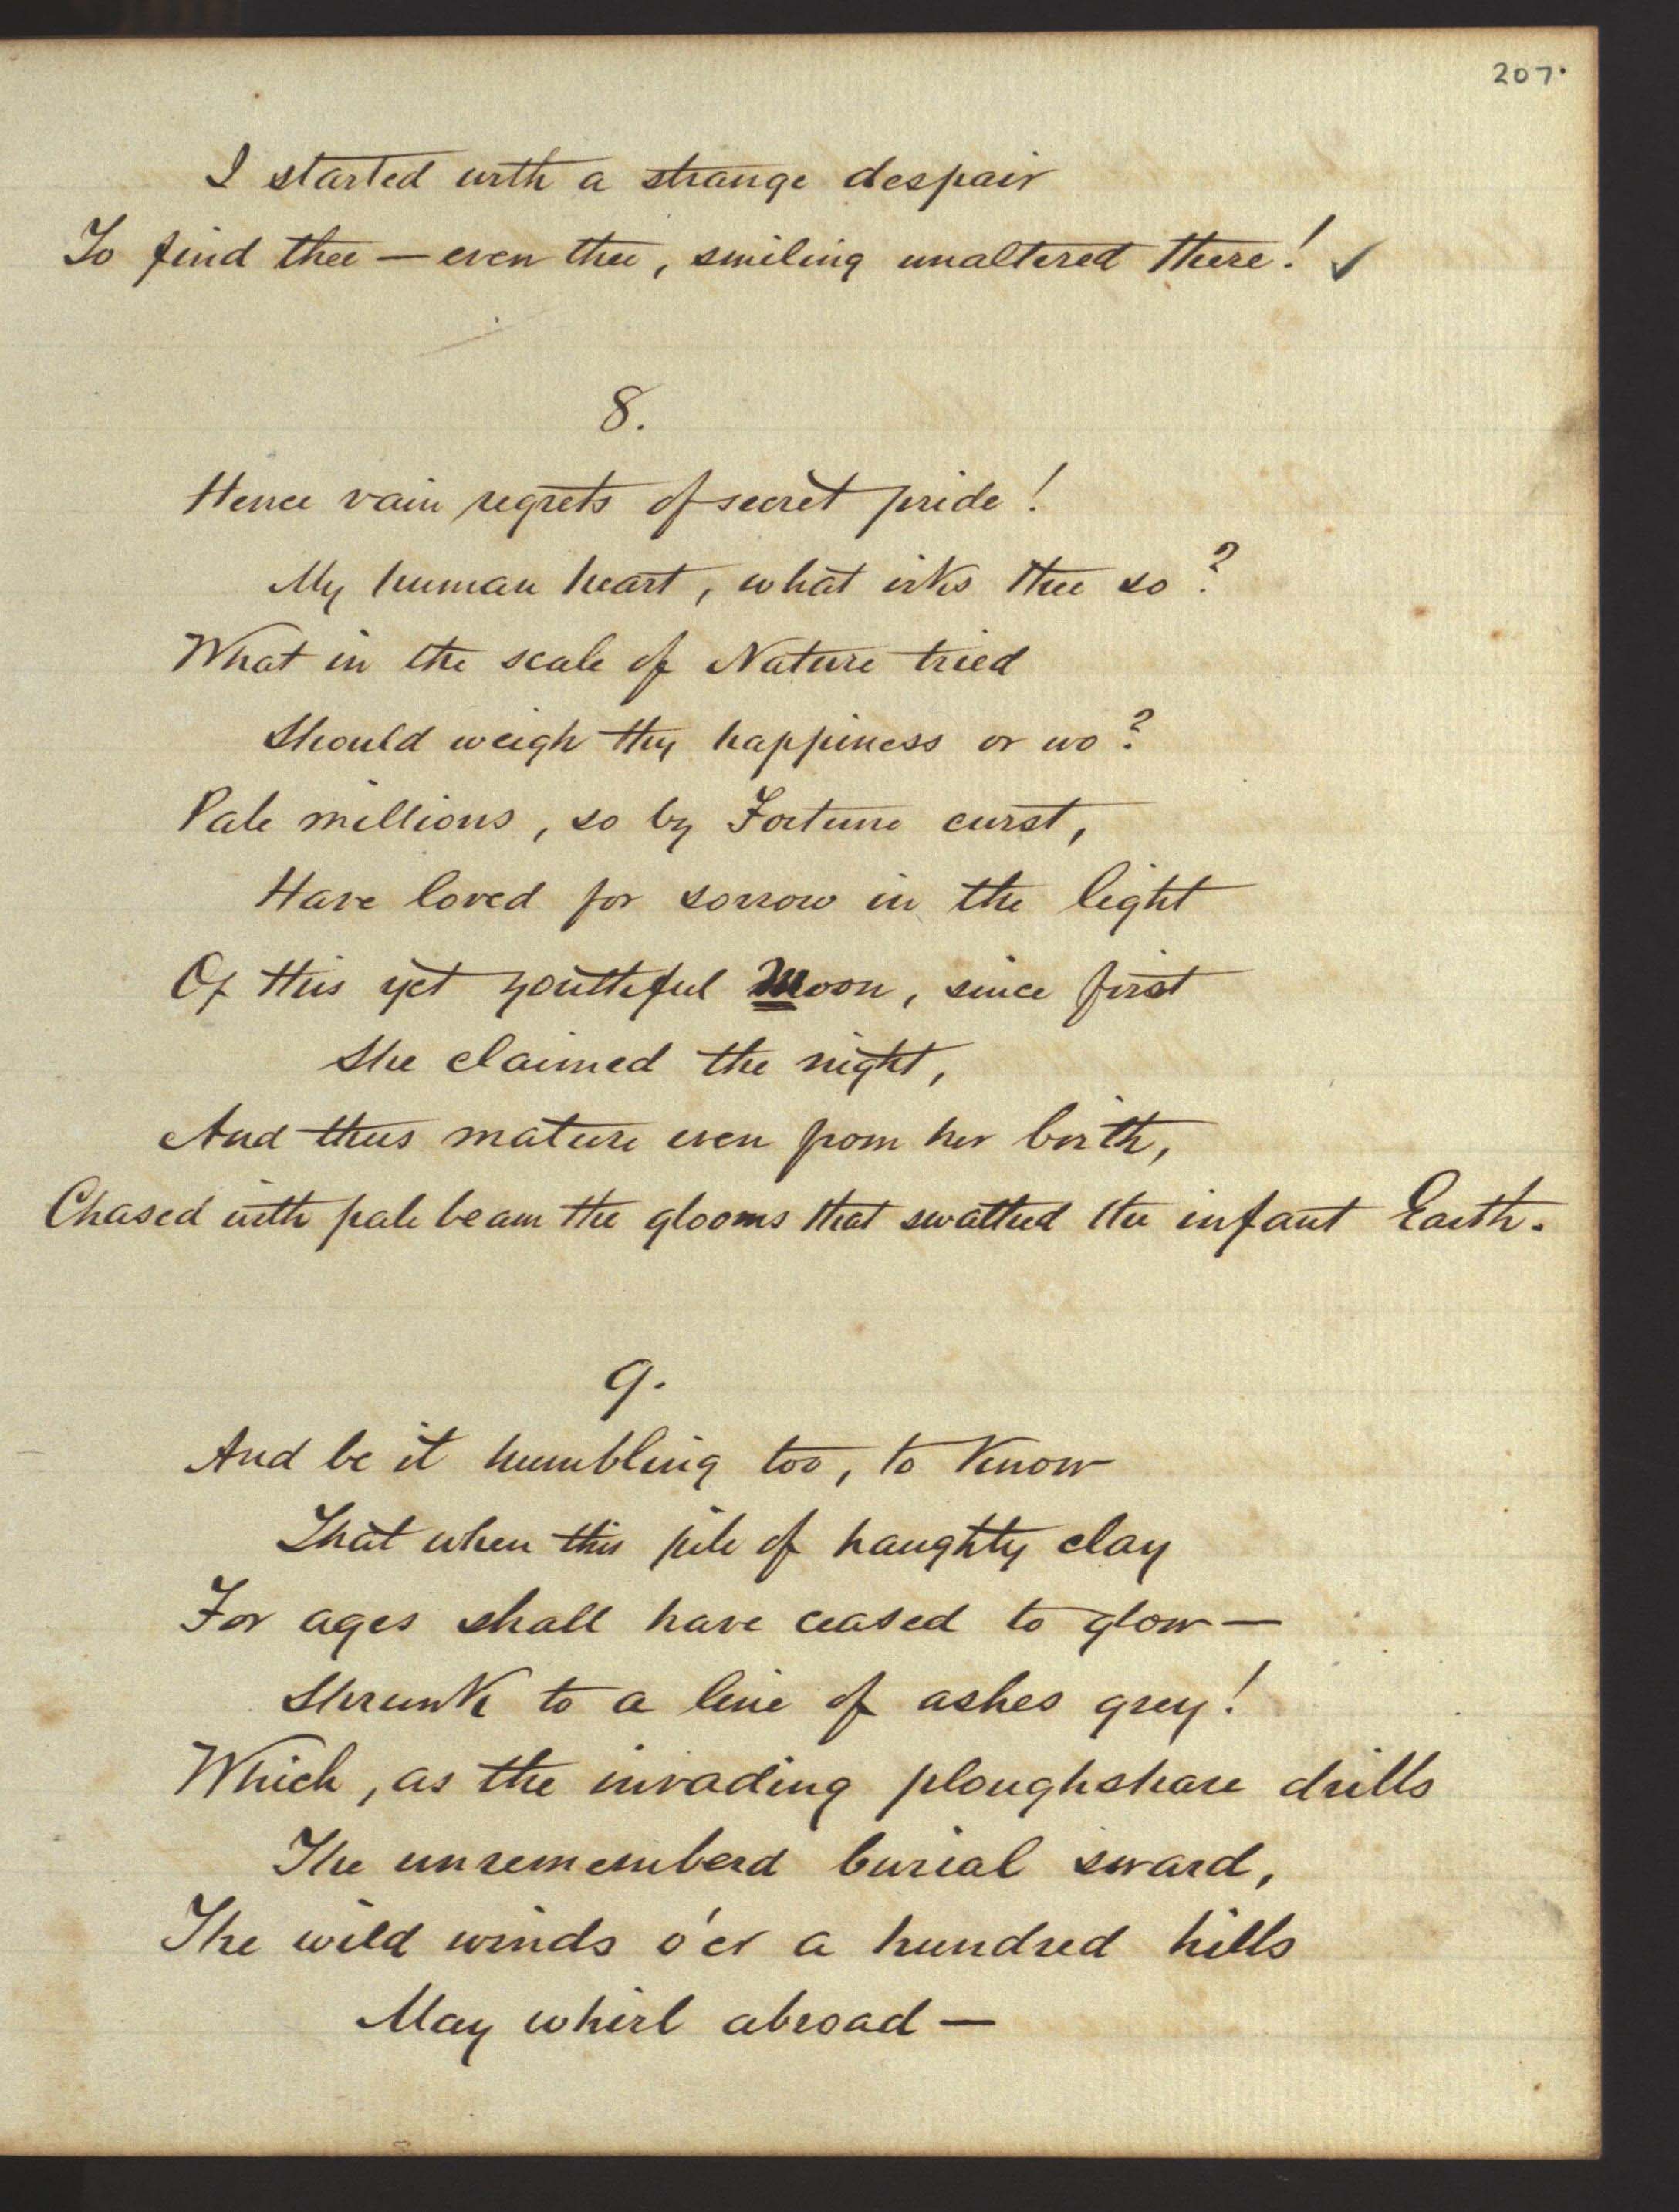 207.
I started with a strange despair
To find thee — even thee, smiling unaltered there! ✓
8.
Hence vain regrets of secret pride!
My human heart, what irks thee so?
What in the scale of Nature tried
Should weigh thy happiness or wo?
Pale millions, so by Fortune curst,
Have loved for sorrow in the light
Of this yet youthful Moon, since first
She claimed the night,
And thus mature even from her birth,
Chased with pale beam the glooms that swathed the infant Earth.
9.
And be it humbling too, to know
That when this pile of haughty clay
For ages shall have ceased to glow —
Shrunk to a line of ashes grey!
Which, as the invading ploughshare drills
The unrememberd burial sward,
The wild winds o'er a hundred hills
May whirl abroad —